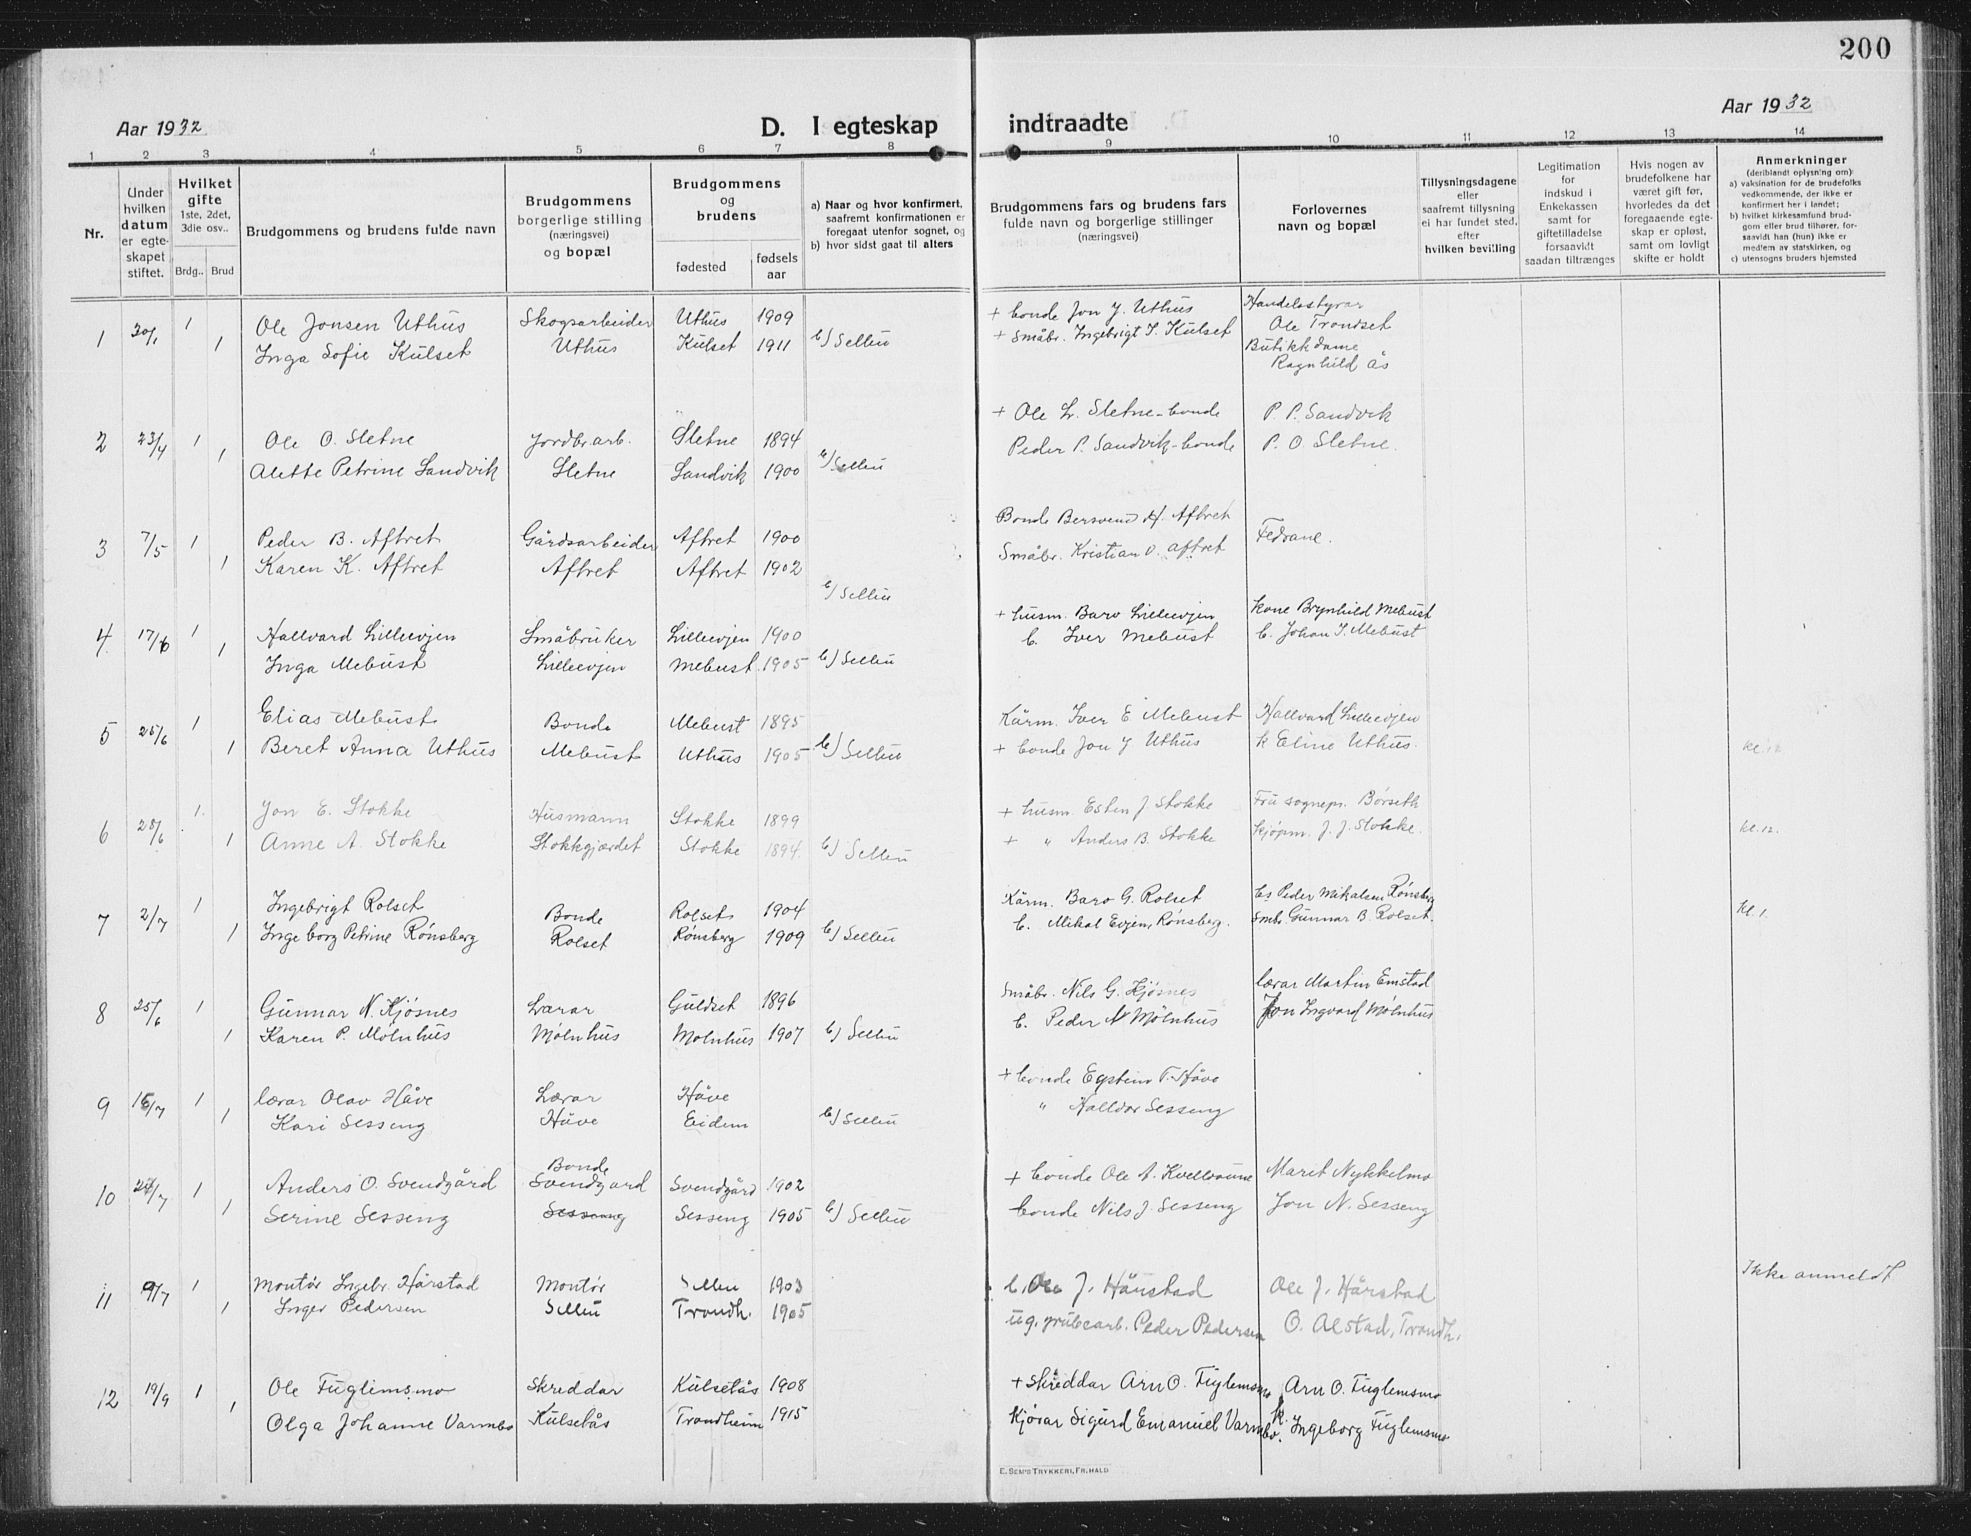 200
Aar 1932
D. I egteskap indtraadte
Aar 1932
1 2 3 4 5 6 7 8 9 10 11 12 13 14
Nr.
Under hvilken datum er egteskapet stiftet.
Hvilket gifte
1ste, 2det, 3die osv..
Brdg.. Brud
Brudgommens og brudens fulde navn
Brudgommens borgerlige stilling (næringsvei) og bopæl
Brudgommens og brudens
fødested
fødsels aar
a) Naar og hvor konfirmert, saafremt konfirmationen er foregaat utenfor sognet, og
b) hvor sidst gaat til alters
Brudgommens fars og brudens fars fulde navn og borgerlige stillinger (næringsvei)
Forlovernes navn og bopæl
Tillysningsdagene eller saafremt tillysning ei har fundet sted, efter hvilken bevilling
Legitimation for indskud i Enkekassen samt for giftetilladelse forsaavidt saadan tiltrænges
Hvis nogen av brudefolkene har været gift før, hvorledes da det foregaaende egteskap er opløst, samt om lovligt skifte er holdt
Anmerkninger
(deriblandt oplysning om)
a) vaksination for de brudefolks vedkommende, der ikke er konfirmert her i landet;
b) hvilket kirkesamfund brudgom eller brud tilhører, forsaavidt han (hun) ikke er medlem av statskirken, og
c) utensogns bruders hjemsted
1 30/1 1 Ole Jonsen Uthus Skogsarbeider Uthus 1909 + bonde Jon J. Uthus Handelsstyrar Ole Trondset
1 Inga Sofie Kulset Uthus Kulset 1911 b) Selbu + Småbr. Ingebrigt J. Kulset Butikkdame Ragnhild Ås
2 23/4 1 Ole O. Sletne Jordbr.arb. Sletne 1894 + Ole L. Sletne - bonde P. P. Sandvik
1 Alette Petrine Sandvik Sletne Sandvik 1900 b) Selbu Peder P. Sandvik - bonde P. O Sletne.
3 7/5 1 Peder B. Aftret Gårdsarbeider Aftret 1900 Bonde Bersvend H. Aftret Fedrane.
1 Karen K. Aftret Aftret Aftret 1902 b) Selbu Småbr. Kristian O. Aftret
4 17/6 1 Hallvard Lilleevjen Småbruker Lilleevjen 1900 + husm. Baro Lilleevjen Kone Brynhild Mebust
1 Inga Mebust Lilleevjen Mebust 1905 b) Selbu b. Iver Mebust b. Johan I. Mebust
5 25/6 1 Elias Mebust Bonde Mebust 1895 Kårm. Iver E Mebust Hallvard Lilleevjen
1 Beret Anna Uthus Mebust Uthus 1905 b) Selbu + bonde Jon J Uthus k Eline Uthus.
6 28/6 1 Jon E. Stokke Husmann Stokke 1899 + husm. Esten J. Stokke Fru sognepr. Børseth
1 Anne A. Stokke Stokkgjærdet Stokke 1894 b) Selbu + " Anders B. Stokke kjøpm. J. J. Stokke. kl. 12.
7 2/7 1 Ingebrigt Rolset Bonde Rolset 1904 Kårm. Baro G. Rolset Bs Peder Mikalsen Rønsberg
1 Ingeborg Petrine Rønsberg Rolset Rønsberg 1909 b) Selbu b. Mikal Evjem, Rønsberg. Smbr Gunnar B. Rolset. Kl. 1.
8 25/6 1 Gunnar N. Kjøsnes Lærar Guldset 1896 Småbr. Nils G. Kjøsnes lærar Martin Emstad
1 Karen P. Mølnhus Mølnhus Mølnhus 1907 b) Selbu b. Peder N Mølnhus Jon Ingvard Mølnhus
9 1 lærar Olav Håve Lærar Håve + bonde Eystein T. Håve
1 Kari Sesseng Håve Eidem b) Selbu " Halldor Sesseng
10 1 Anders O. Svendgård Bonde Svendgard Svendgård 1902 + bonde Ole A. Kvellomme Maret Nykkelmo
1 Serine Sesseng Sesseng Sesseng 1905 b) Selbu bonde Nils J. Sesseng Jon N. Sesseng
11 9/7 1 Montør Ingebr. Hårstad Montør Selbu 1903 b. Ole J. Hårstad Ole J. Hårstad Ikke anmeldt
1 Inger Pedersen Selbu Trondh. 1905 ug. grubearb. Peder Pedersen O. Alstad, Trondh.
12 19/9 1 Ole Fuglemsmo Skreddar Kulsetås 1908 + Skreddar Arn O. Fuglemsmo Arn O. Fuglemsmo
1 Olga Johanne Varmbo Kulsetås Trondheim 1915 Kjørar Sigurd Emanuel Varmbo. k. Ingeborg Fuglemsmo
E. SEM'S TRYKKERI, FR.HALD